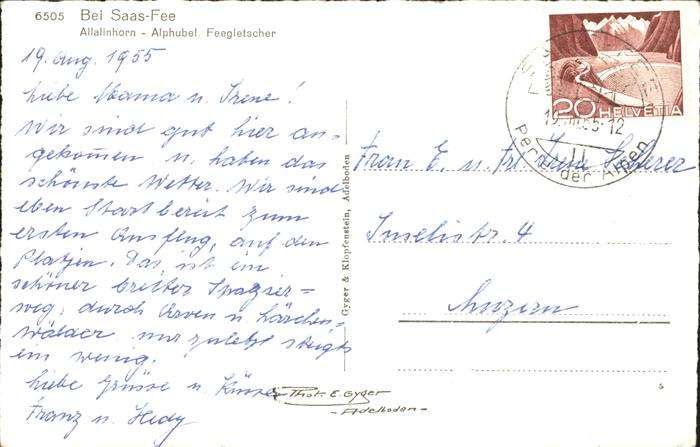 6505 Bei Saas-Fee
Allalinhorn - Alphubel Feegletscher
19. Aug. 1955
Liebe Mama u. Irene!
Wir sind gut hier an-
gekommen u. haben das
schönste Wetter. Wir sind
eben Startbereit zum
ersten Ausflug, auf den
Platjen. Das ist ein
schöner breiter Spazier=
weg, durch Arven u Lärchen-
wälder nur zuletzt steigts
ein wenig.
Liebe Grüsse u Küsse
Franz u. Hedy
Phot. E. Gyger
- Adelboden -
Gyger & Klopfenstein, Adelboden
20 HELVETIA
19. 55-12
Perle der Alpen
Frau E. u. Frl. Irene Scherer
Inselistr. 4
Luzern
5